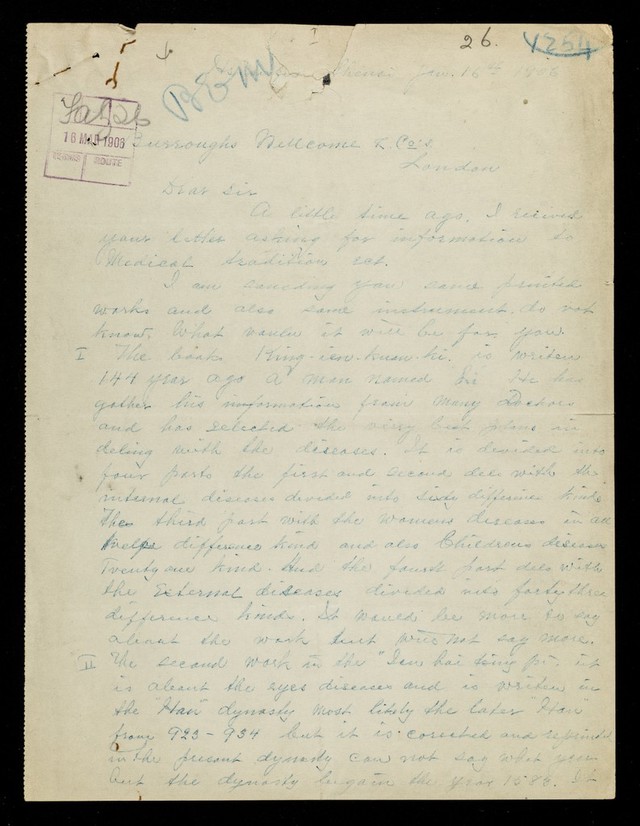 26.
4254
Shensi Jan. 16th 1906
16 MAR 1906
Burroughs Wellcome & Co's
London
Dear Sir
A little time ago, I recived
your letter asking for information to
Medical tradition ect.
I am sending you some printed
works and also some instrument. do not
know, What value it will be for you
I The book is writen
144 year ago a man named He has
gather his information from many Doctors
and has selected the very best plans in
deling with the diseases. It is devided into
four parts the first and second dels with the
internal diseases devided into sixty difference kinds
The third part with the womens diseases in all
twelfe difference kind and also Childrens diseases
Twenty one kind. And the fourth part dels with
the External diseases divided into forty three
difference kinds. It would be more to say
about the work but will not say more.
II The second work is the it
is about the eyes diseases and is writen in
the "Han" dynasty most likely the later "Han"
from 923-934 but it is corected and reprinted
in the present dynasty can not say what year
but the dynasty began the year 1586. It